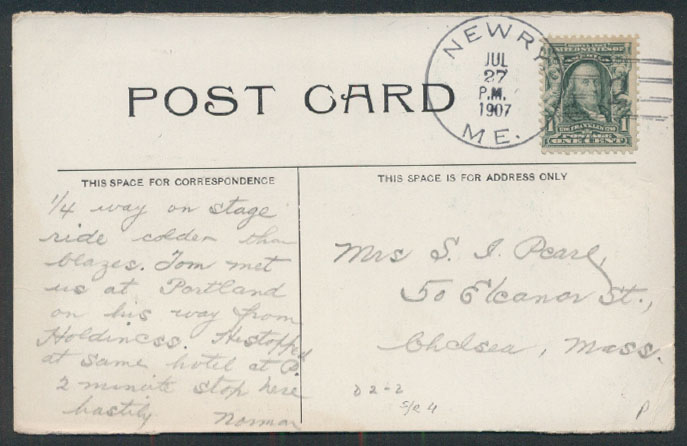 POST CARD
NEWRY
JUL
27
P.M.
1907
ME.
POSTAGE
ONE CENT
THIS SPACE FOR CORRESPONDENCE
1/4 way on stage
ride colder than
blazes. Tom met
us at Portland
on his way from
He stopped
at same hotel at P.
2 minute stop here
hastily Norman
THIS SPACE IS FOR ADDRESS ONLY
Mrs S. I. Pearl,
50 Eleanor St.,
Chelsea, Mass.